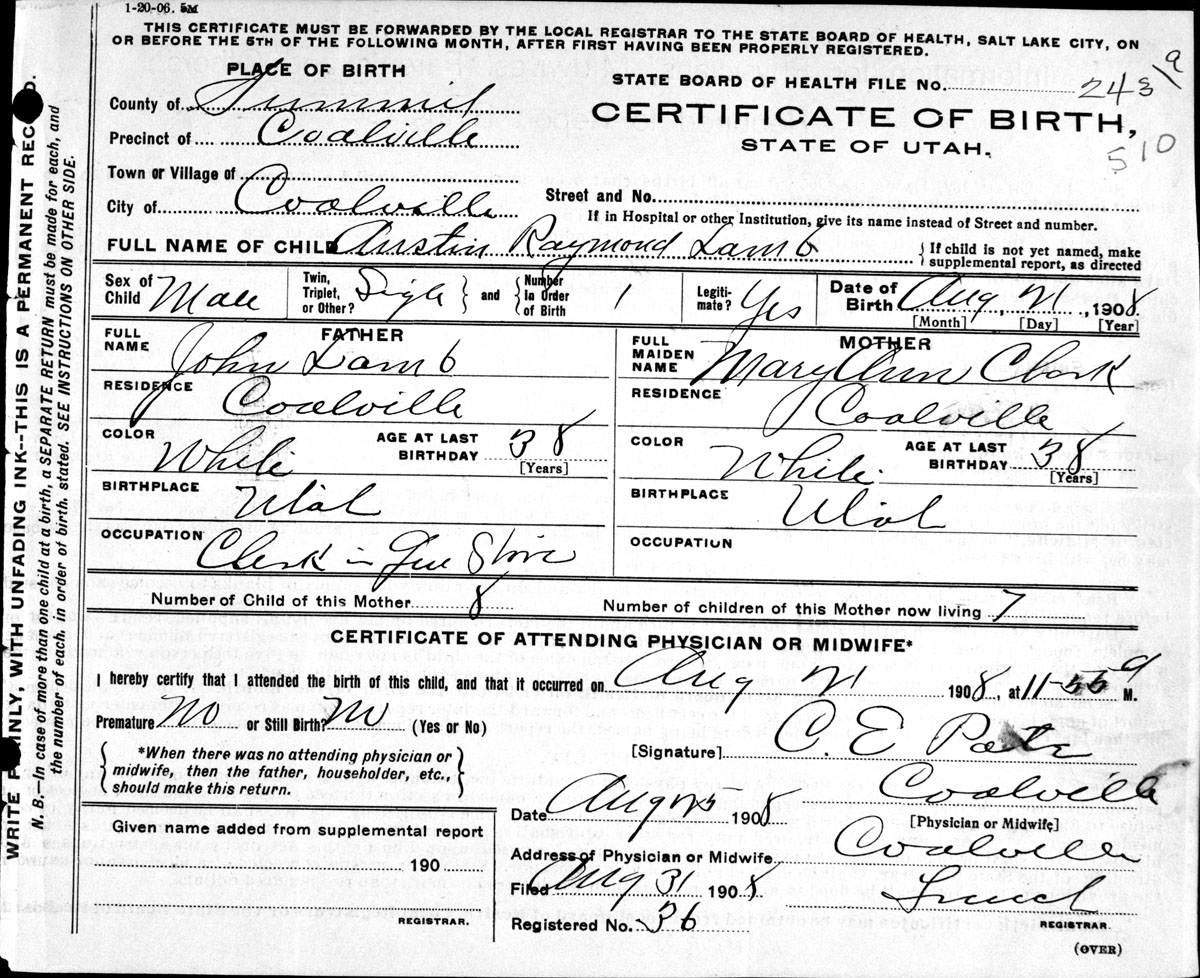 1-20-06. 5M
THIS CERTIFICATE MUST BE FORWARDED BY THE LOCAL REGISTRAR TO THE STATE BOARD OF HEALTH, SALT LAKE CITY, ON
OR BEFORE THE 5TH OF THE FOLLOWING MONTH, AFTER FIRST HAVING BEEN PROPERLY REGISTERED.
PLACE OF BIRTH
County of Summit
Precinct of Coalville
Town or Village of
City of Coalville
STATE BOARD OF HEALTH FILE No. 243
CERTIFICATE OF BIRTH,
STATE OF UTAH.
510
Street and No.
If in Hospital or other Institution, give its name instead of Street and number.
FULL NAME OF CHILD Austin Raymond Lamb
If child is not yet named, make
supplemental report, as directed
Sex of Child Male
Twin, Triplet, or Other? Single and Number in Order of Birth 1
Legitimate? Yes
Date of Birth Aug 21, 1908
[Month] [Day] [Year]
FATHER
FULL NAME John Lamb
RESIDENCE Coalville
COLOR White AGE AT LAST BIRTHDAY 38
[Years]
BIRTHPLACE Utah
OCCUPATION Clerk in Gen Store
MOTHER
FULL MAIDEN NAME Mary Ann Clark
RESIDENCE Coalville
COLOR White. AGE AT LAST BIRTHDAY 38
[Years]
BIRTHPLACE Utah
OCCUPATION
Number of Child of this Mother 8 Number of children of this Mother now living 7
CERTIFICATE OF ATTENDING PHYSICIAN OR MIDWIFE*
I hereby certify that I attended the birth of this child, and that it occurred on Aug 21 1908, at 11-55 M.
Premature No or Still Birth? No (Yes or No)
*When there was no attending physician or
midwife, then the father, householder, etc.,
should make this return.
[Signature] C. E.
Coalville
[Physician or Midwife]
Date Aug 25 1908
Address of Physician or Midwife Coalville
Filed Aug 31 1908
Registered No. 36
REGISTRAR.
(OVER)
Given name added from supplemental report
190
REGISTRAR.
WRITE PLAINLY, WITH UNFADING INK--THIS IS A PERMANENT
N. B.—In case of more than one child at a birth, a SEPARATE RETURN must be made for each, and
the number of each, in order of birth, stated. SEE INSTRUCTIONS ON OTHER SIDE.